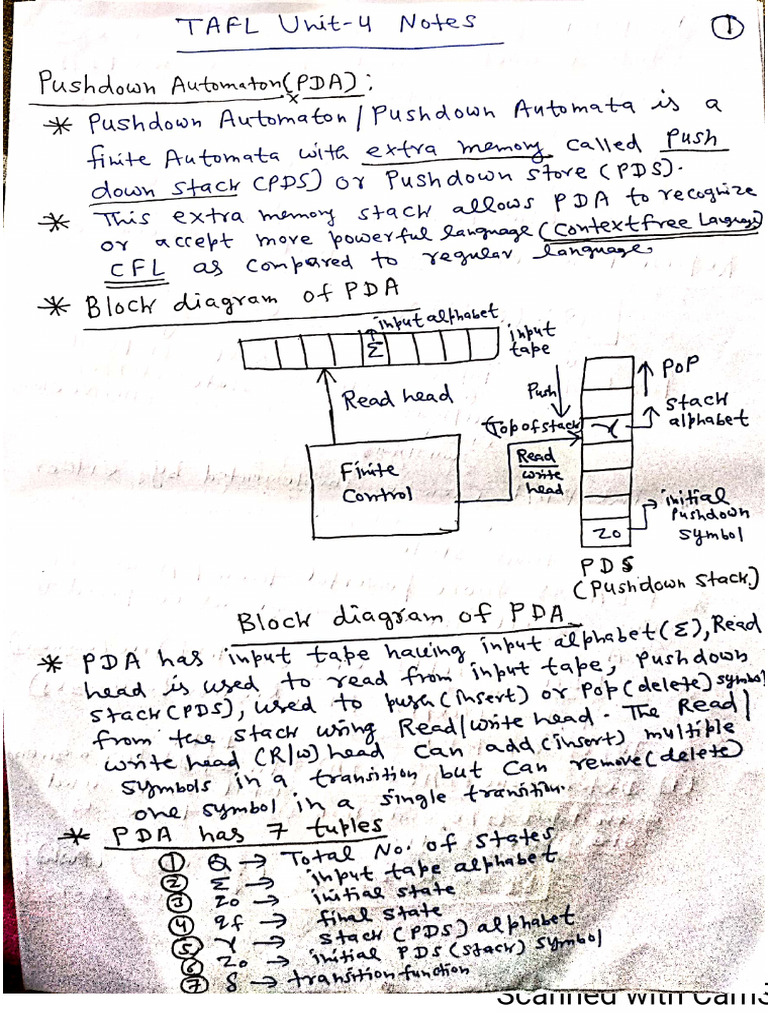 TAFL Unit-4 Notes
1
Pushdown Automaton(PDA):
* Pushdown Automaton/Pushdown Automata is a
finite Automata with extra memory called Push
down stack (PDS) or Pushdown store (PDS).
* This extra memory stack allows PDA to recognize
or accept more powerful language (Context free Language)
CFL as compared to regular language
* Block diagram of PDA
input alphabet
Σ
input
tape
Read head
Push
POP
(Top of stack
γ
stack
alphabet
Finite
Control
Read
write
head
initial
Pushdown
symbol
Z0
PDS
(Pushdown Stack)
Block diagram of PDA
* PDA has input tape having input alphabet(Σ), Read
head is used to read from input tape, pushdown
stack(PDS), used to push(insert) or Pop(delete) symbol
from the stack using Read/write head. The Read/
write head (R/W) head can add(insert) multiple
symbols in a transition but can remove(delete)
one symbol in a single transition.
* PDA has 7 tuples
① Q → Total No. of states
② Σ → input tape alphabet
③ Z0 → initial state
④ qf → final state
⑤ γ → stack (PDS) alphabet
⑥ Z0 → initial PDS (stack) symbol
⑦ δ → transition function
Scanned with Cam